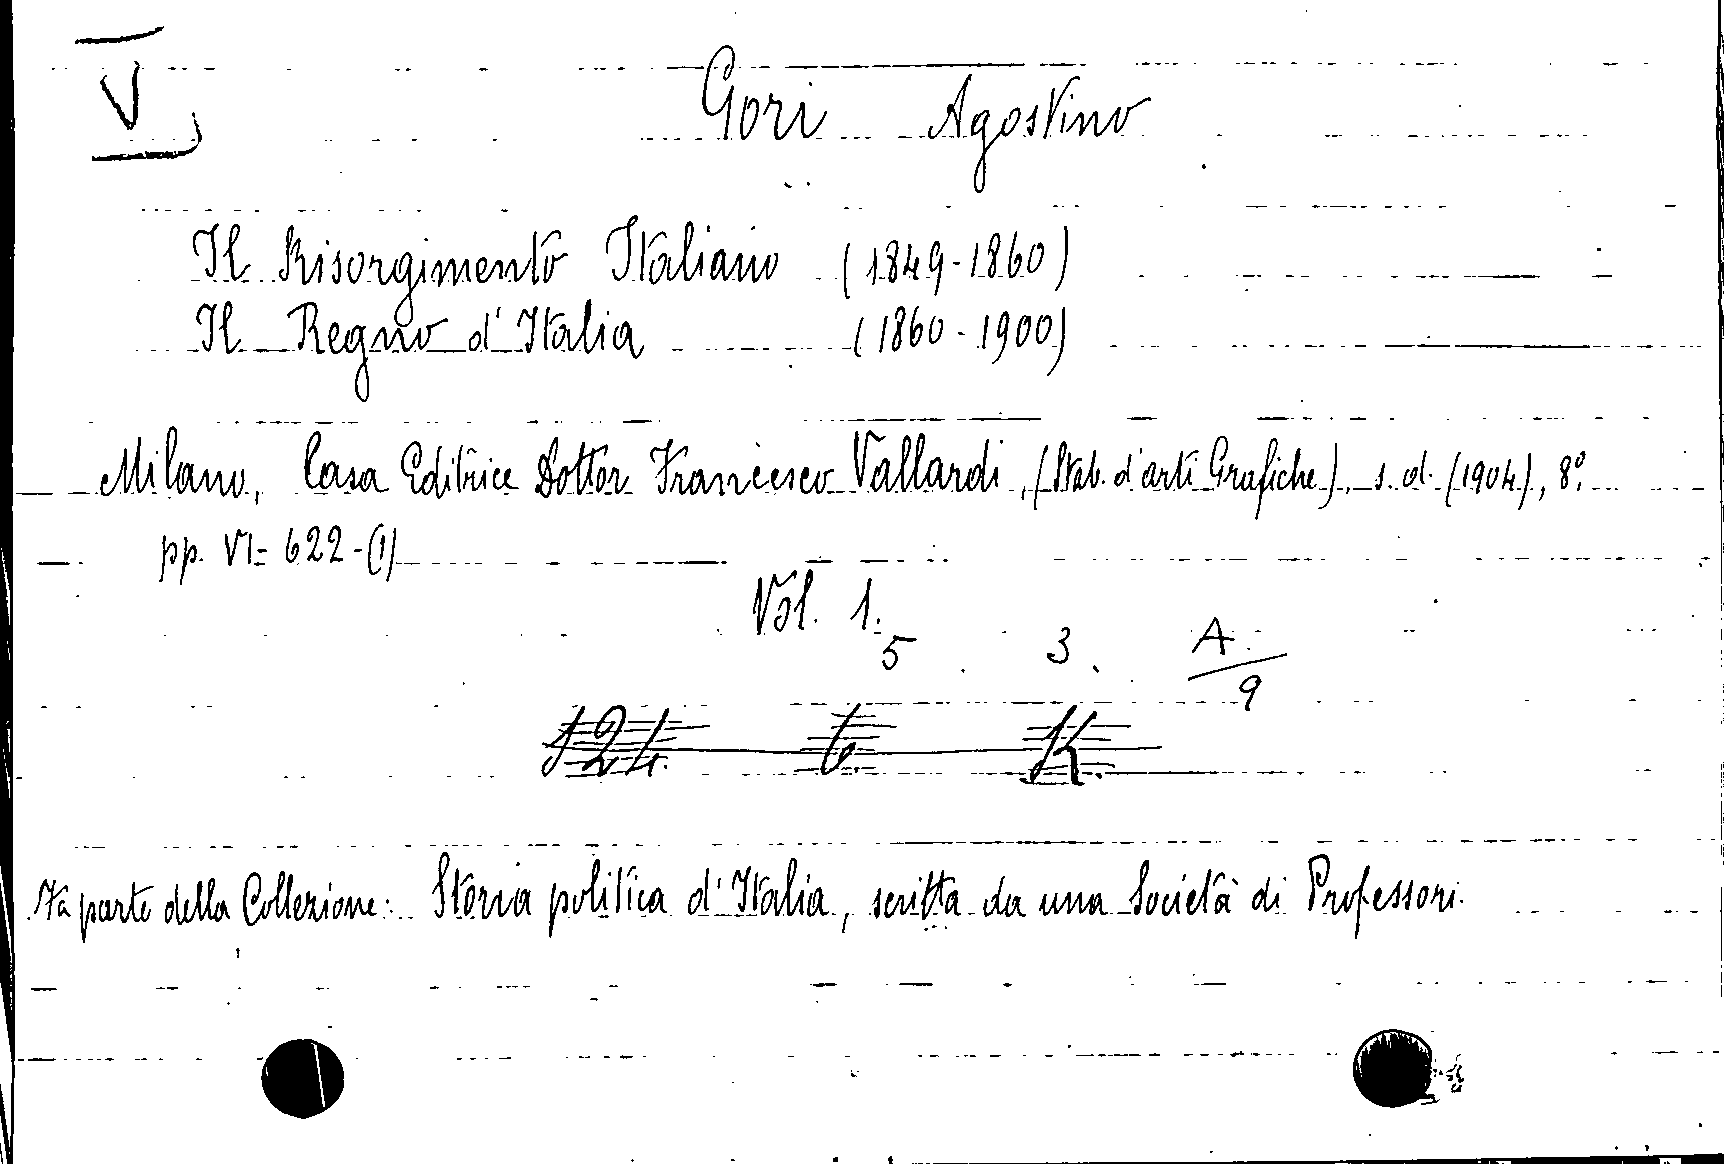 V
Gori Agostino
Il Risorgimento Italiano (1849-1860)
Il Regno d'Italia (1860-1900)
Milano, Casa Editrice Dottor Francesco Vallardi, (Stab. d'arti Grafiche), s. d. (1904), 8°.
pp. VI= 622-(1)
Vol. 1.
5 . 3 . A/9
124. 6. K.
Fa parte della Collezione: Storia politica d'Italia, scritta da una Società di Professori.